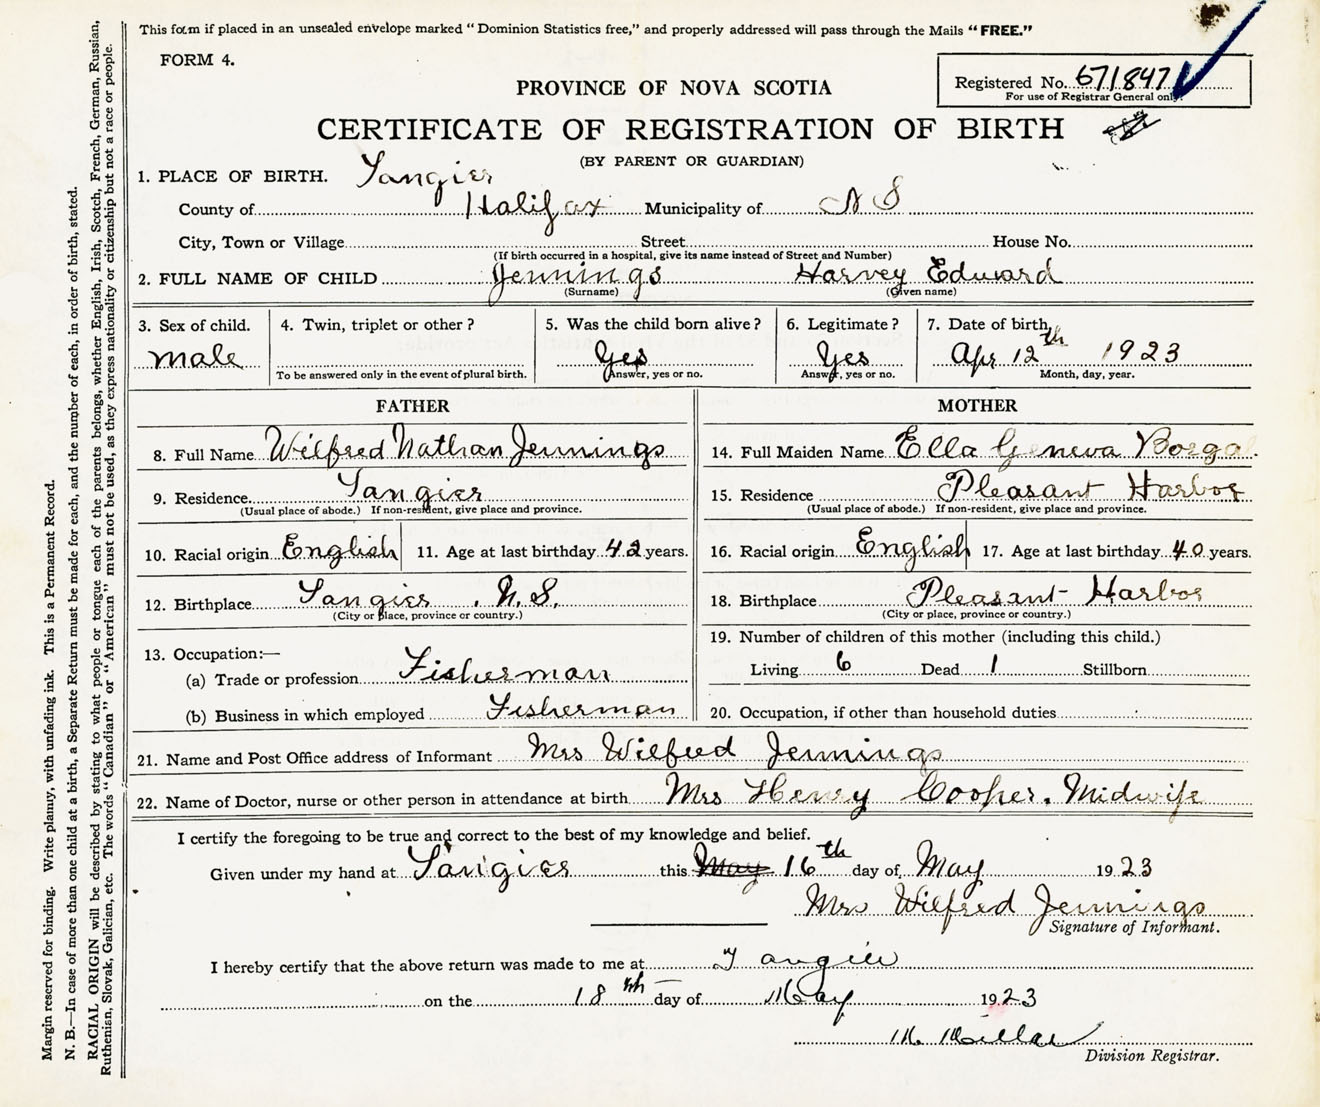 This form if placed in an unsealed envelope marked "Dominion Statistics free," and properly addressed will pass through the Mails "FREE."
FORM 4.
PROVINCE OF NOVA SCOTIA
Registered No. 671847
For use of Registrar General only.
CERTIFICATE OF REGISTRATION OF BIRTH
(BY PARENT OR GUARDIAN)
1. PLACE OF BIRTH. Tangier
County of Halifax Municipality of N S
City, Town or Village Street House No.
(If birth occurred in a hospital, give its name instead of Street and Number)
2. FULL NAME OF CHILD Jennings Harvey Edward
(Surname) (Given name)
3. Sex of child. 4. Twin, triplet or other? 5. Was the child born alive? 6. Legitimate? 7. Date of birth
male Yes Yes Apr 12th 1923
To be answered only in the event of plural birth. Answer, yes or no. Answer, yes or no. Month, day, year.
FATHER MOTHER
8. Full Name Wilfred Nathan Jennings 14. Full Maiden Name Ella Geneva Borgal.
9. Residence Tangier 15. Residence Pleasant Harbor
(Usual place of abode.) If non-resident, give place and province. (Usual place of abode.) If non-resident, give place and province.
10. Racial origin English 11. Age at last birthday 42 years. 16. Racial origin English 17. Age at last birthday 40 years.
12. Birthplace Tangier . N.S. 18. Birthplace Pleasant Harbor
(City or place, province or country.) (City or place, province or country.)
13. Occupation:— 19. Number of children of this mother (including this child.)
(a) Trade or profession Fisherman Living 6 Dead 1 Stillborn
(b) Business in which employed Fisherman 20. Occupation, if other than household duties
21. Name and Post Office address of Informant Mrs Wilfred Jennings
22. Name of Doctor, nurse or other person in attendance at birth Mrs Henry Cooper. Midwife
I certify the foregoing to be true and correct to the best of my knowledge and belief.
Given under my hand at Tangier this May 16th day of May 1923
Mrs Wilfred Jennings
Signature of Informant.
I hereby certify that the above return was made to me at Tangier
on the 18th day of May 1923
Division Registrar.
Margin reserved for binding. Write plainly, with unfading ink. This is a Permanent Record.
N. B.—In case of more than one child at a birth, a Separate Return must be made for each, and the number of each, in order of birth, stated.
RACIAL ORIGIN will be described by stating to what people or tongue each of the parents belongs, whether English, Irish, Scotch, French, German, Russian,
Ruthenian, Slovak, Galician, etc. The words "Canadian" or "American" must not be used, as they express nationality or citizenship but not a race or people.